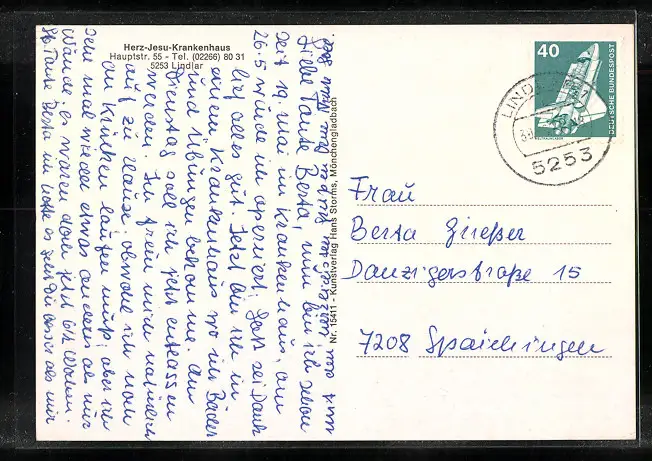 Herz-Jesu-Krankenhaus
Hauptstr. 55 - Tel. (02266) 80 31
5253 Lindlar
Liebe Tante Berta, nun bin ich schon
seit 19. Mai im Krankenhaus, am
26.5 wurde ich operiert, Gott sei Dank
lief alles gut. Jetzt bin ich in
einem Krankenhaus wo ich Bäder
und Übungen bekomme. Am
Dienstag soll ich jetzt entlassen
werden. Ich freu mich natürlich
auf zu Hause, obwohl ich noch
an Krücken laufen muß, aber ich
seh mal wieder etwas anderes als nur
Wände, es waren doch jetzt bis Wochen.
Tante Berta ich hoffe es geht Dir besser als mir
Nr. 15411 - Kunstverlag Hans Storms, Mönchengladbach
40
DEUTSCHE BUNDESPOST
LINDLAR
5253
Frau
Berta Grießer
Danzigerstraße 15
7208 Spaichingen